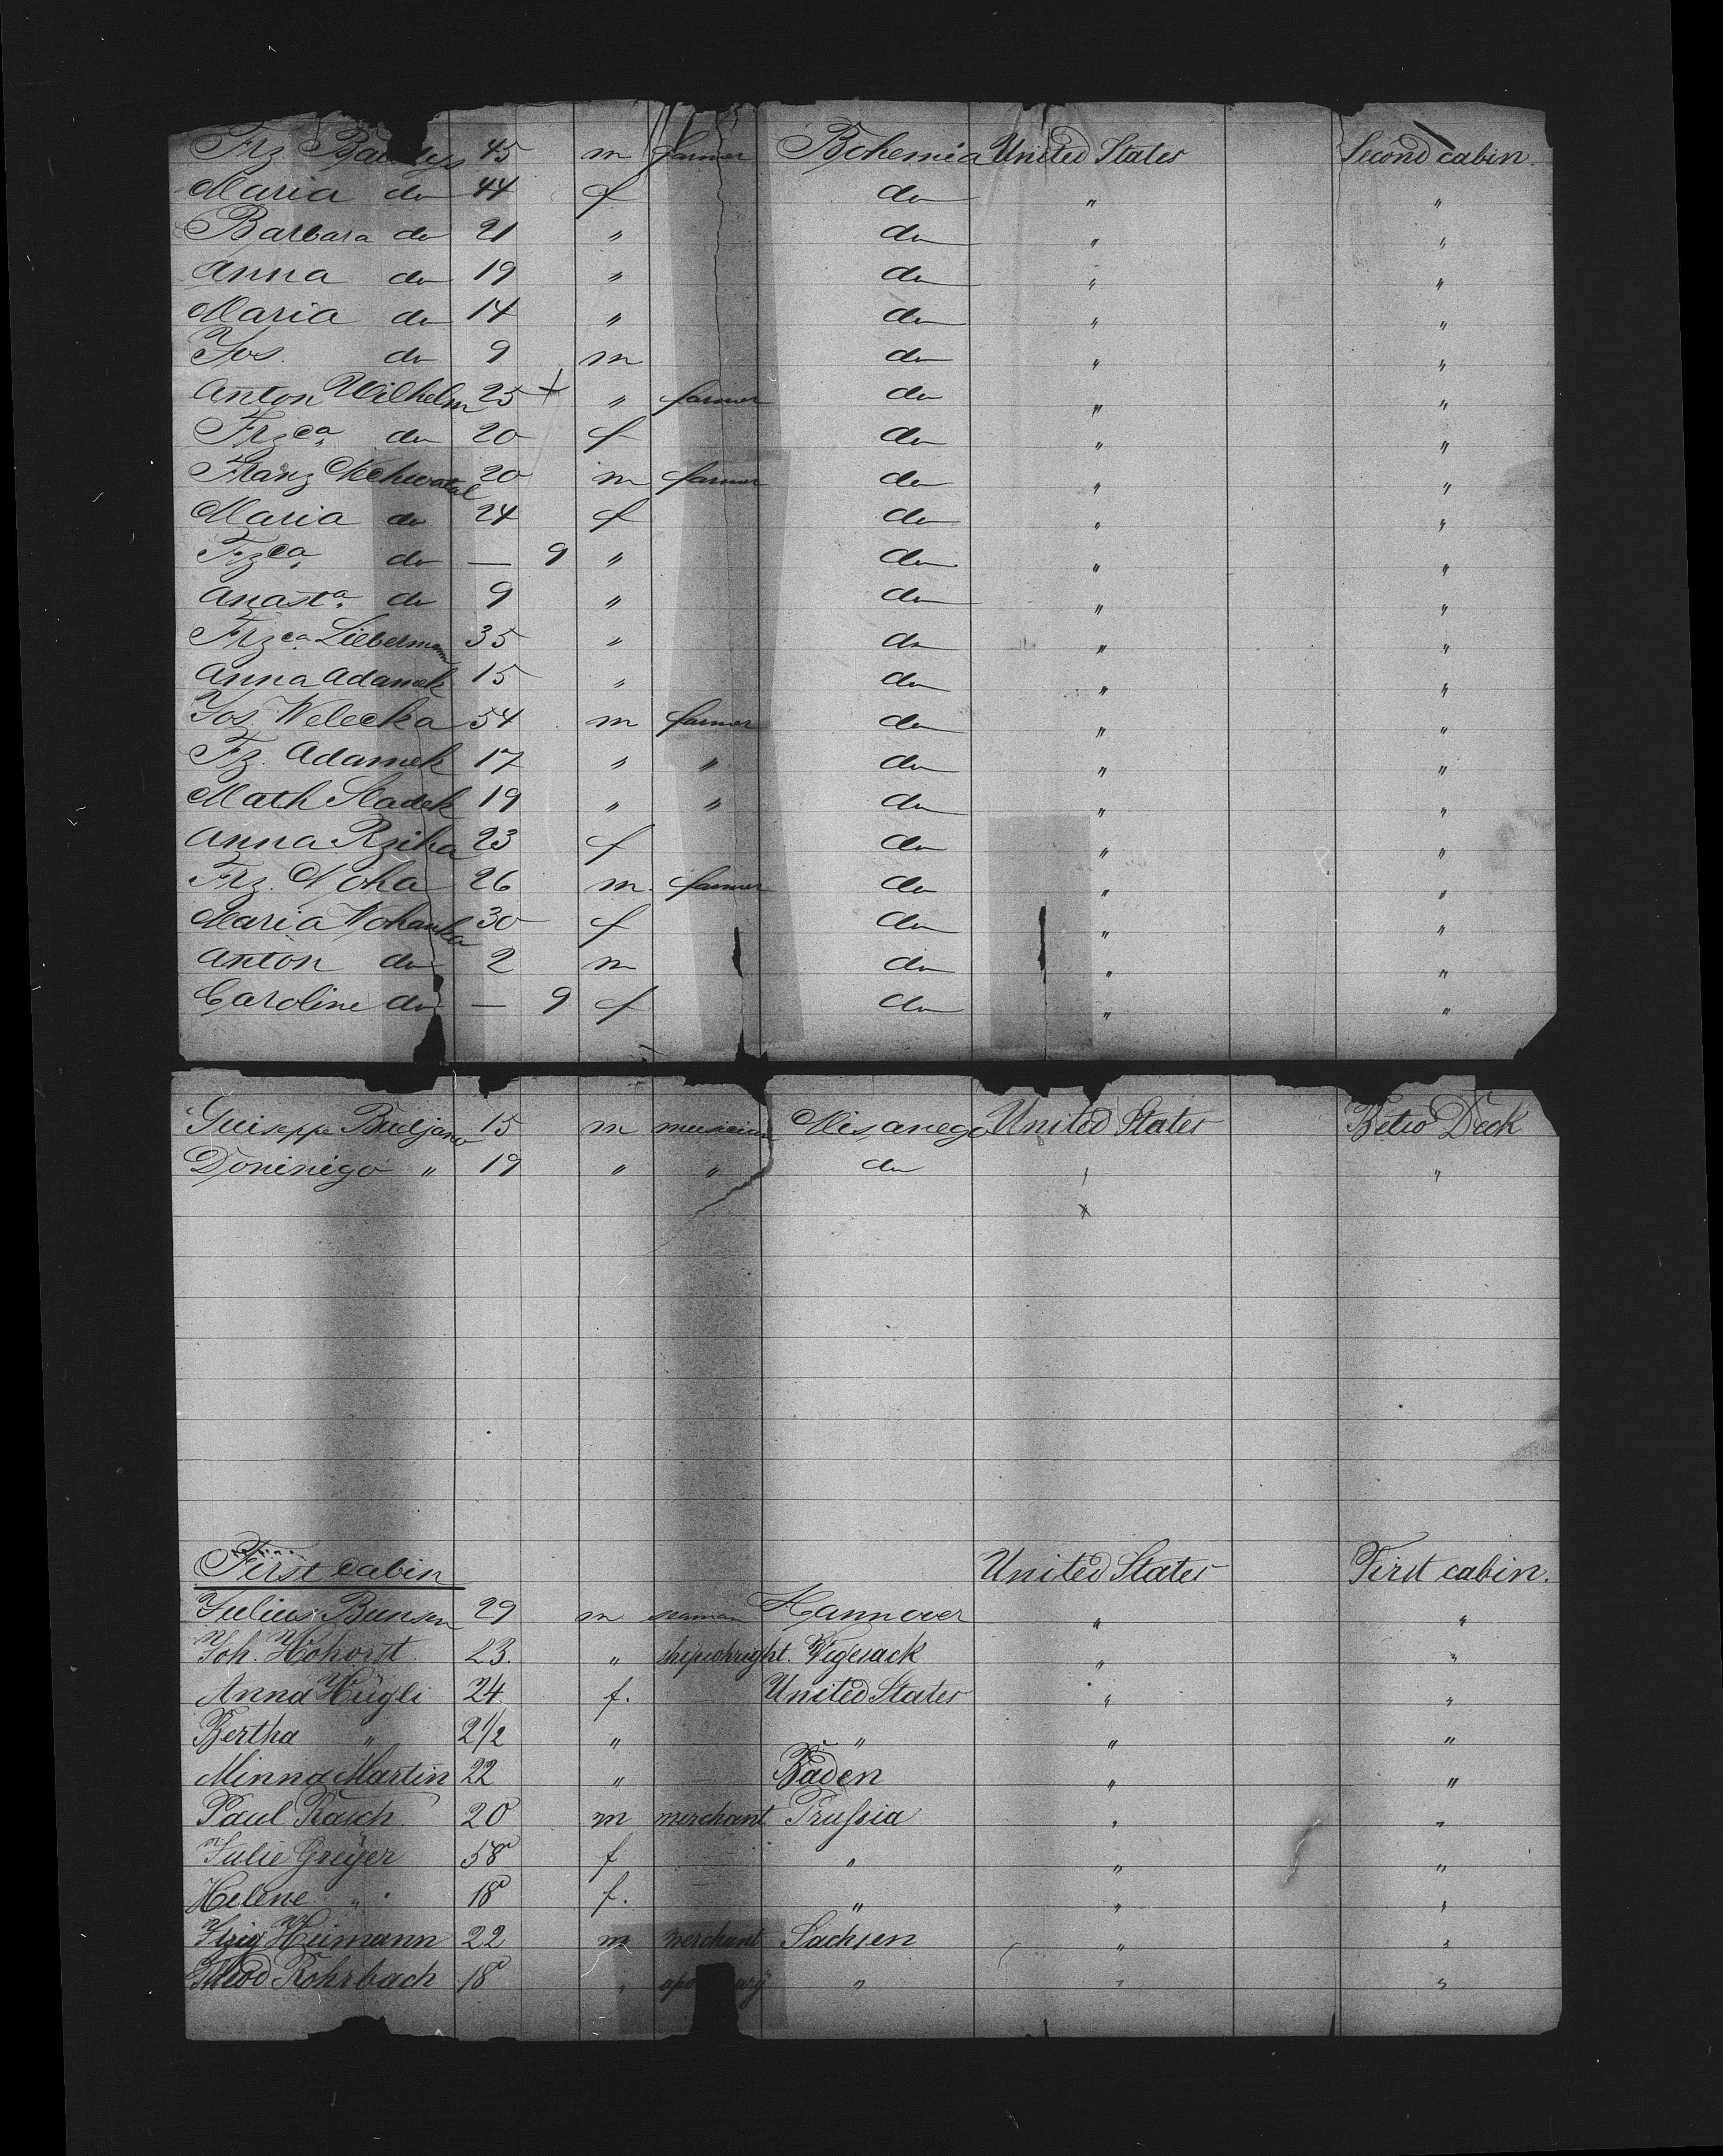 Frz 45 m farmer Bohemia United States Second cabin.
Maria do 44 f do " "
Barbara do 21 " do " "
Anna do 19 " do " "
Maria do 14 " do " "
Jos. do 9 m do " "
Anton Wilhelm 25 + " farmer do " "
Frzca. do 20 f do " "
Franz Nechwatal 20 m farmer do " "
Maria do 24 f do " "
Frzca. do — 9 " do " "
Anasta. do 9 " do " "
Frzca. Liebermann 35 " do " "
Anna Adamek 15 " do " "
Jos. Welecka 54 m farmer do " "
Fz. Adamek 17 " " do " "
Math Sladek 19 " " do " "
Anna Rziha 23 f do " "
Frz. Noha 26 m. farmer do " "
Maria Nohauka 30 f do " "
Anton do 2 m do " "
Caroline do — 9 f do " "
Guiseppe 15 m musician United States Betw Deck
Doninigo " 19 " " do " "
First cabin United States First cabin.
Julius Bunsen 29 m seaman Hannover " "
Joh. Hohorst. 23. " shipwright. Vegesack " "
Anna Hügli 24 f. United States " "
Bertha " 2 1/2 " " " "
Minna Martin 22 " Baden " "
Paul Rasch. 20 m merchant Prussia " "
Julie Greyer 58 f " " "
Helene " 18 f. " " "
Itzig Heimann 22 m merchant Sachsen " "
Theod Rohrbach 18 " " " "